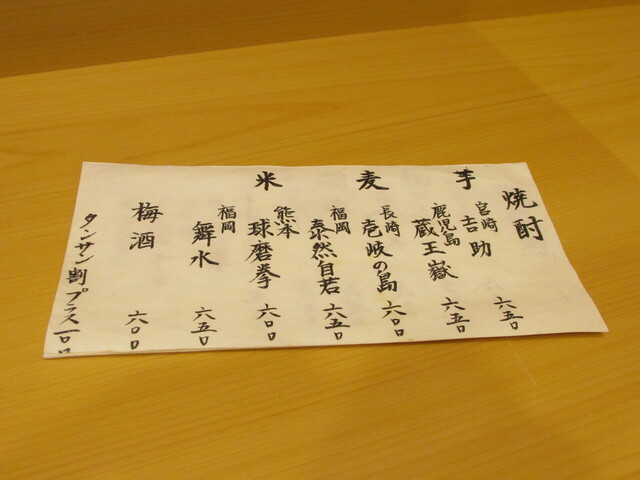 焼酎
芋
宮崎 吉助 六五〇
鹿児島 蔵王嶽 六五〇
麦
長崎 壱岐の島 六〇〇
福岡 泰然自若 六五〇
米
熊本 球磨拳 六〇〇
福岡 舞水 六五〇
梅酒 六〇〇
タンサン割プラス一〇〇